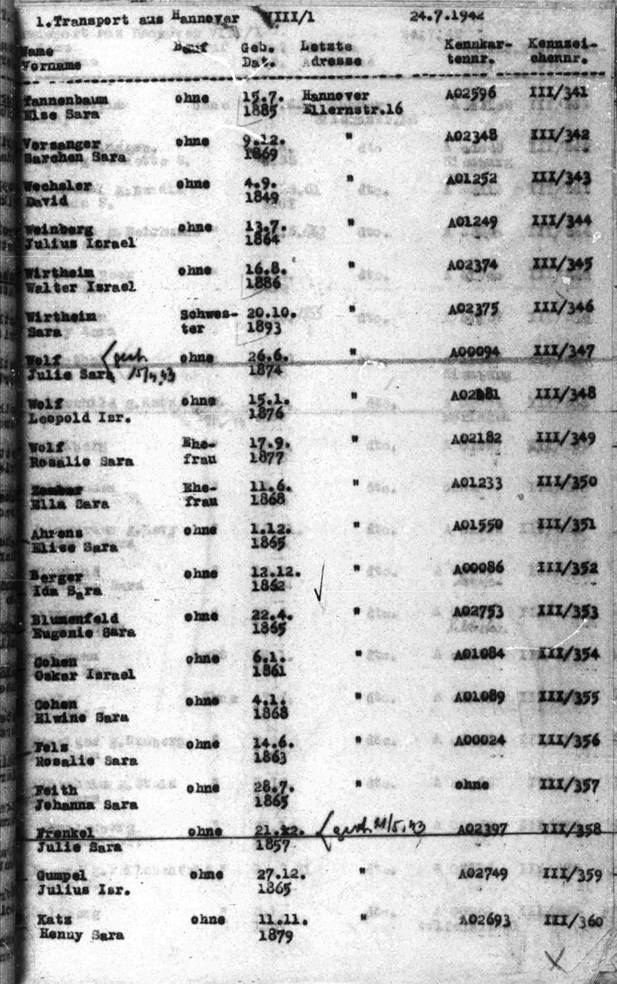 1.Transport aus Hannover VIII/1 24.7.1942
Name Beruf Geb. Letzte Kennkar- Kennzei-
Vorname Dat. Adresse tennr. chennr.
Tannenbaum ohne 15.7. Hannover A02596 III/341
Else Sara 1885 Ellernstr.16
Versanger ohne 9.12. " A02348 III/342
Sarchen Sara 1869
Wechsler ohne 4.9. " A01252 III/343
David 1849
Weinberg ohne 13.7. " A01249 III/344
Julius Israel 1864
Wirtheim ohne 16.8. " A02374 III/345
Walter Israel 1886
Wirtheim Schwes- 20.10. " A02375 III/346
Sara ter 1893
Wolf gest. ohne 26.6. " A00094 III/347
Julie Sara 1874
Wolf ohne 15.1. " III/348
Leopold Isr. 1876
Wolf Ehe- 17.9. " A02182 III/349
Rosalie Sara frau 1877
Ehe- 11.6. " A01233 III/350
Ella Sara frau 1868
Ahrens ohne 1.12. " A01550 III/351
Elise Sara 1865
Berger ohne " A00086 III/352
Ida Sara 1862
Blumenfeld ohne 22.4. " A02753 III/353
Eugenie Sara 1865
Cohen ohne 6.1. " A01084 III/354
Oskar Israel 1861
Cohen ohne 4.1. " A01089 III/355
Elwine Sara 1868
Fels ohne 14.6. " A00024 III/356
Rosalie Sara 1863
Feith ohne 28.7. " ohne III/357
Johanna Sara 1865
Frenkel ohne 21.12. gest. 21/5.43 A02397 III/358
Julie Sara 1857
Gumpel ohne 27.12. " A02749 III/359
Julius Isr. 1865
Katz ohne 11.11. " A02693 III/360
Henny Sara 1879